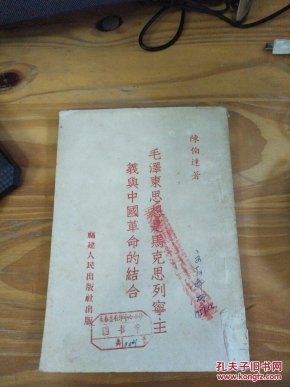 陳伯達著
毛澤東思想是馬克思列寧主
義與中國革命的結合
福建人民出版社出版
圖書室